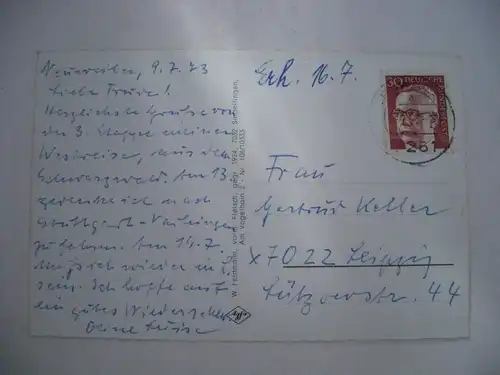 Neuweiler, 9.7.73
Liebe Trude!
Herzlichste Grüße von
der 3. Etappe meiner
Westreise, aus dem
Schwarzwald. Am 13.
gedenke ich nach
Stuttgart-Vaihingen
zu fahren. Am 14.7.
muß ich wieder in
sein. Ich hoffe auf
ein gutes Wiedersehen
Deine Luise
W. Fleischmann, vorm. Fleisch, gegr. 1934, 7032 Sindelfingen,
Am Vogelhain 2 - Nr. 106/10533
Agfa
Erh. 16.7.
30 DEUTSCHE BUNDESPOST
261
Frau
Gertrud Keller
x7022 Leipzig
Lützowstr. 44